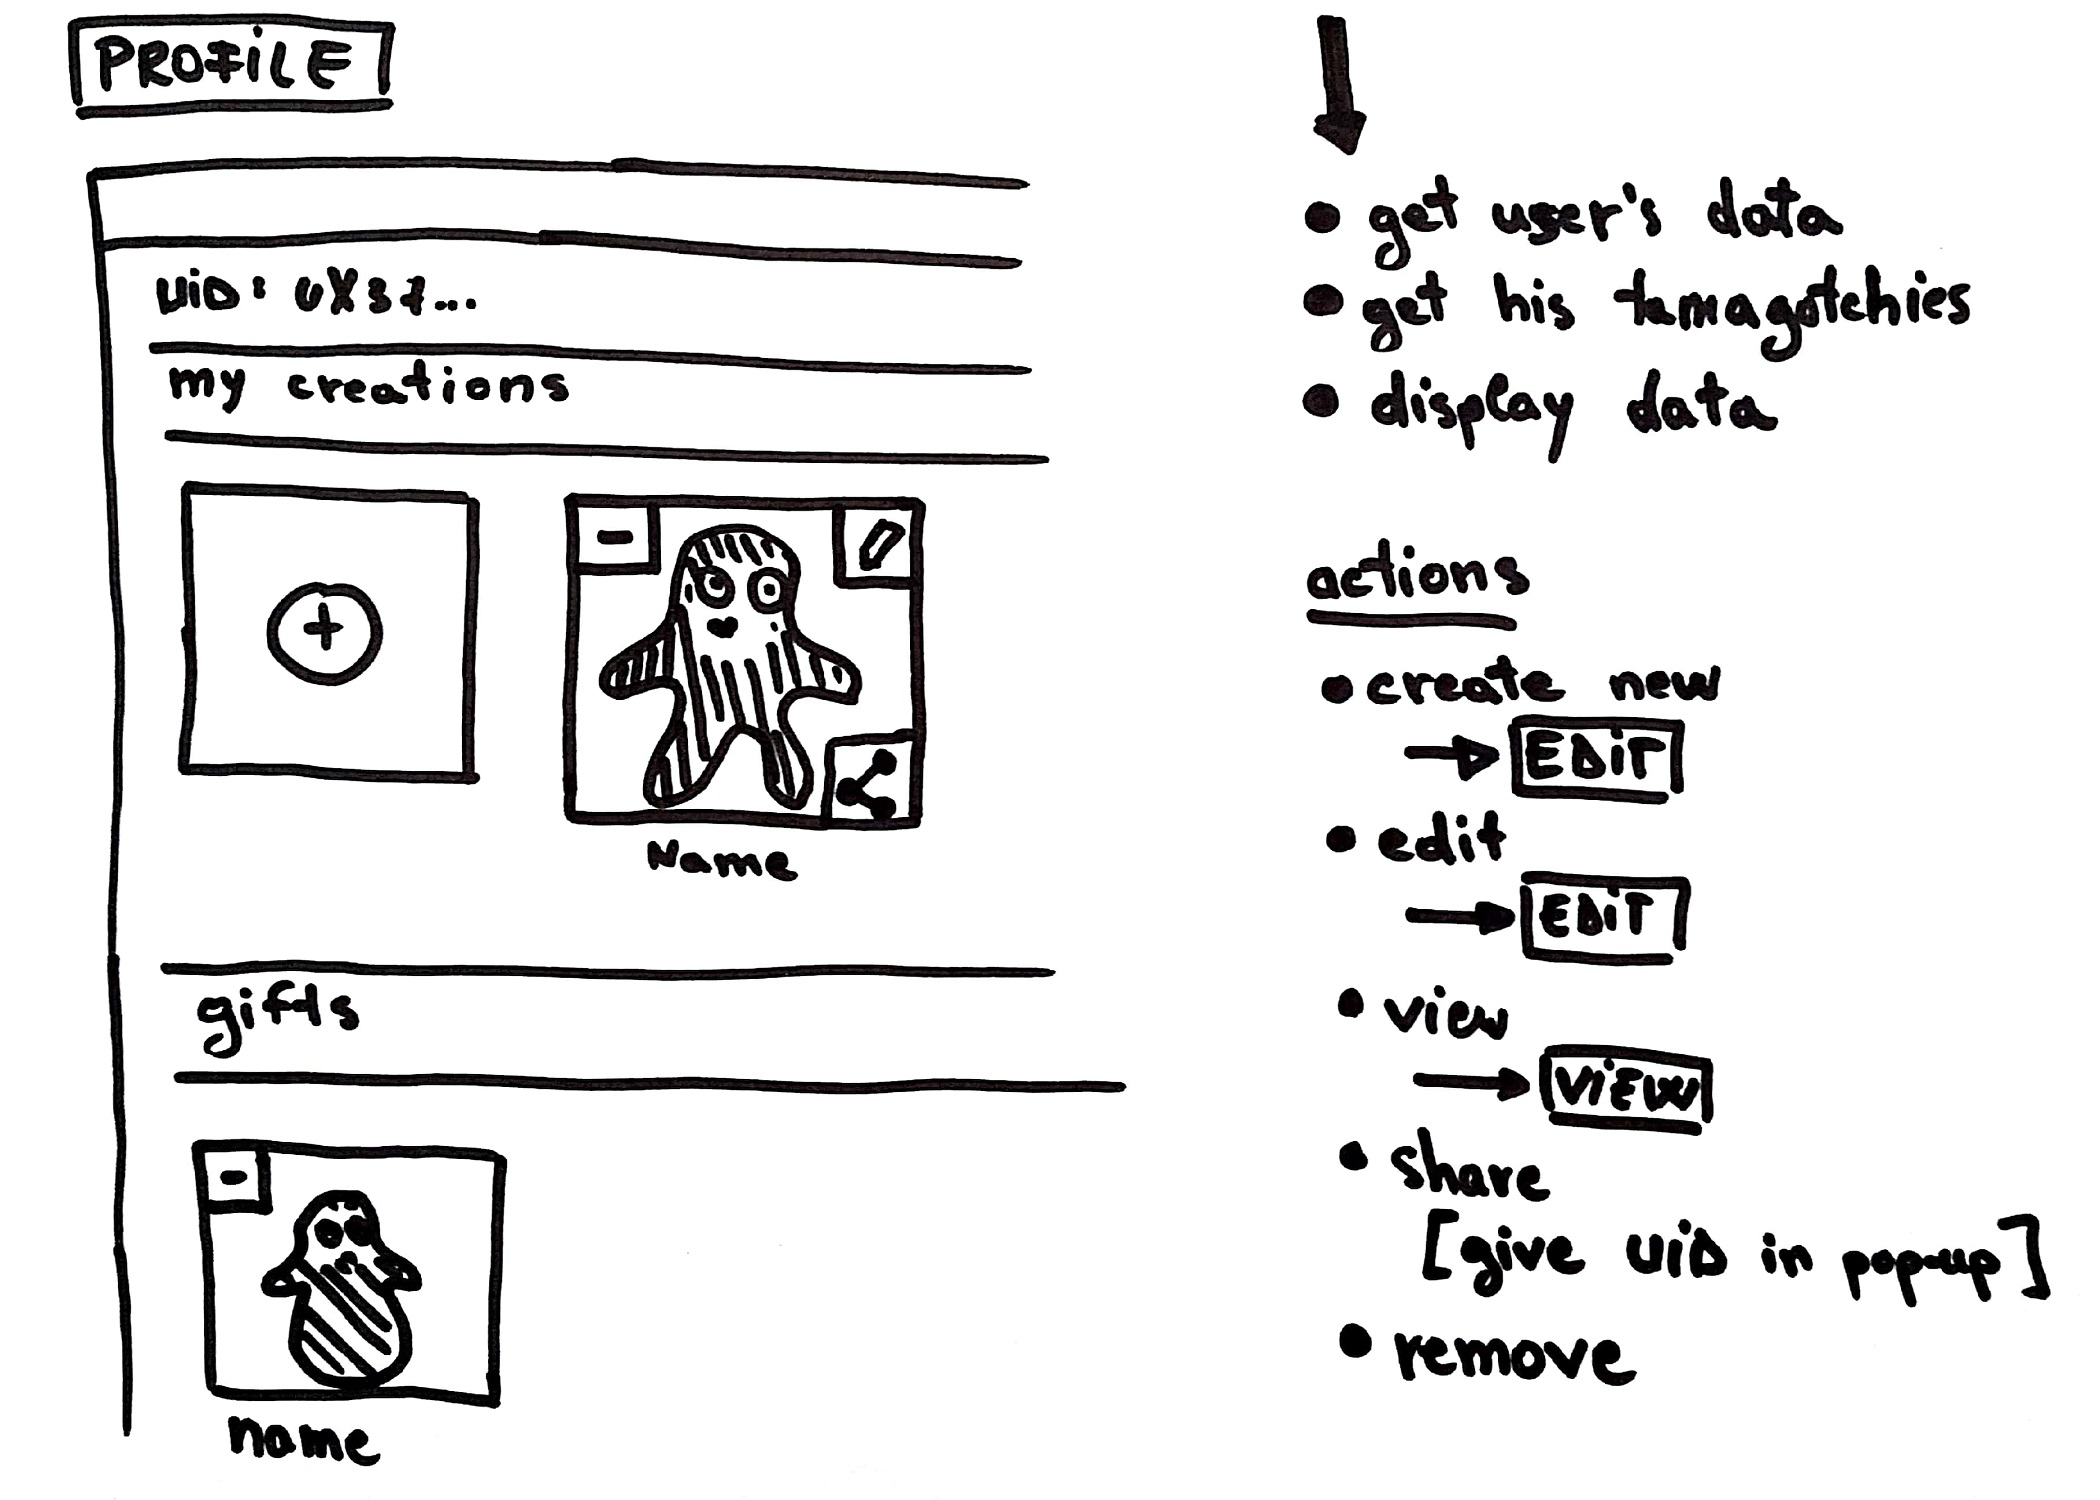 PROFiLE
UiD: 0X37...
my creations
+
-
Name
gifts
-
name
• get user's data
• get his tamagotchies
• display data
actions
• create new
→ EDiT
• edit
→ EDiT
• view
→ ViEW
• share
[give UiD in pop-up]
• remove